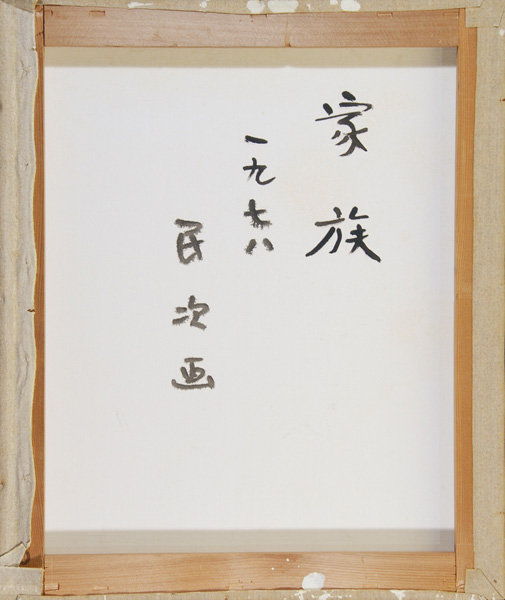 家族
一九七八
民次画